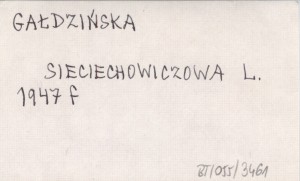 GAŁDZIŃSKA
SIECIECHOWICZOWA L.
1947 f
BI/055/3461